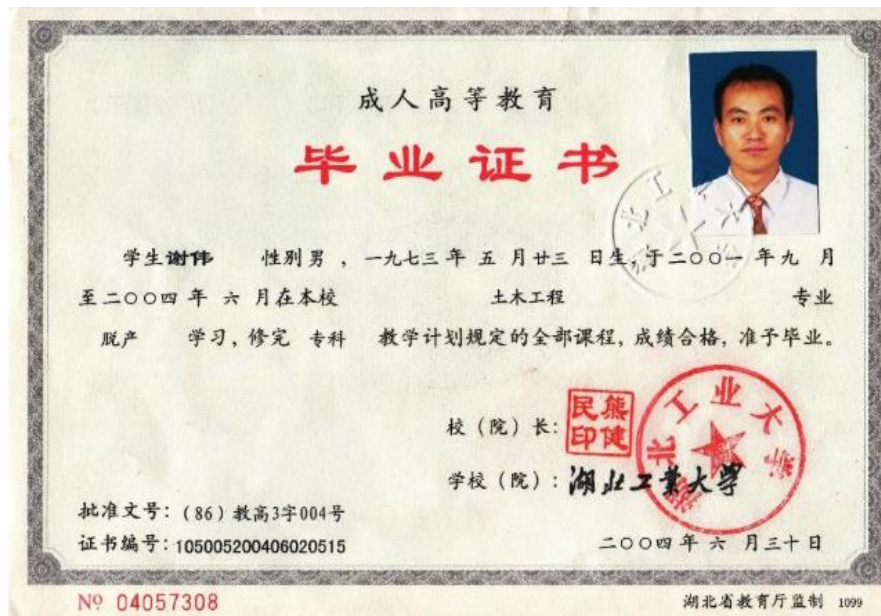 成人高等教育
毕业证书
学生谢伟 性别男，一九七三年 五 月廿三 日生，于二〇〇一 年九 月
至二〇〇四年 六 月在本校 土木工程 专业
脱产 学习，修完 专科 教学计划规定的全部课程，成绩合格，准予毕业。
校（院）长：
熊健民印
学校（院）：湖北工业大学
湖北工业大学
批准文号：（86）教高3字004号
证书编号：105005200406020515
二〇〇四年 六 月三十日
№ 04057308
湖北省教育厅监制 1099